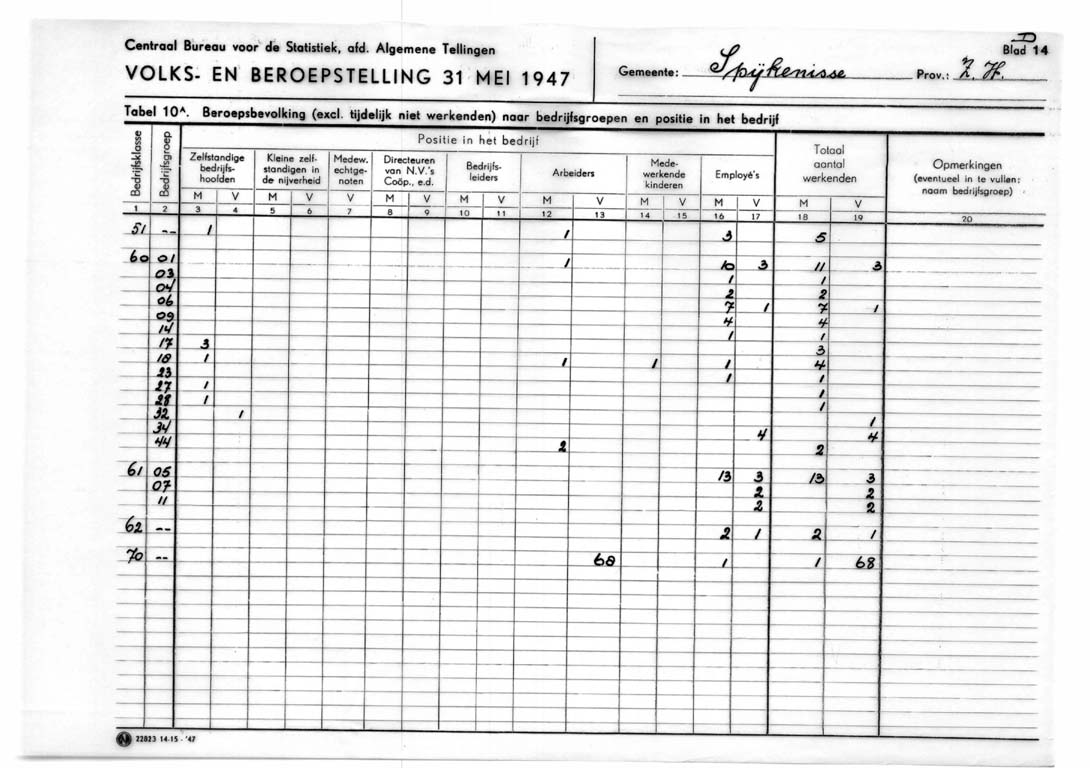 D
Centraal Bureau voor de Statistiek, afd. Algemene Tellingen
Blad 14
VOLKS- EN BEROEPSTELLING 31 MEI 1947
Gemeente: Spijkenisse Prov.: Z. H.
Tabel 10A. Beroepsbevolking (excl. tijdelijk niet werkenden) naar bedrijfsgroepen en positie in het bedrijf
Bedrijfsklasse
Bedrijfsgroep
Positie in het bedrijf
Zelfstandige bedrijfs- hoofden
Kleine zelf- standigen in de nijverheid
Medew. echtge- noten
Directeuren van N.V.'s Coöp., e.d.
Bedrijfs- leiders
Arbeiders
Mede- werkende kinderen
Employé's
Totaal aantal werkenden
Opmerkingen (eventueel in te vullen: naam bedrijfsgroep)
M V M V V M V M V M V M V M V M V
1 2 3 4 5 6 7 8 9 10 11 12 13 14 15 16 17 18 19 20
51 -- 1 1 3 5
60 01 1 10 3 11 3
03 1 1
04 2 2
06 7 1 7 1
09 4 4
14 1 1
17 3 3
18 1 1 1 1 4
23 1 1
27 1 1
28 1 1
32 1 1
34 4 4
44 2 2
61 05 13 3 13 3
07 2 2
11 2 2
62 -- 2 1 2 1
70 -- 68 1 1 68
22823 14-15 - '47